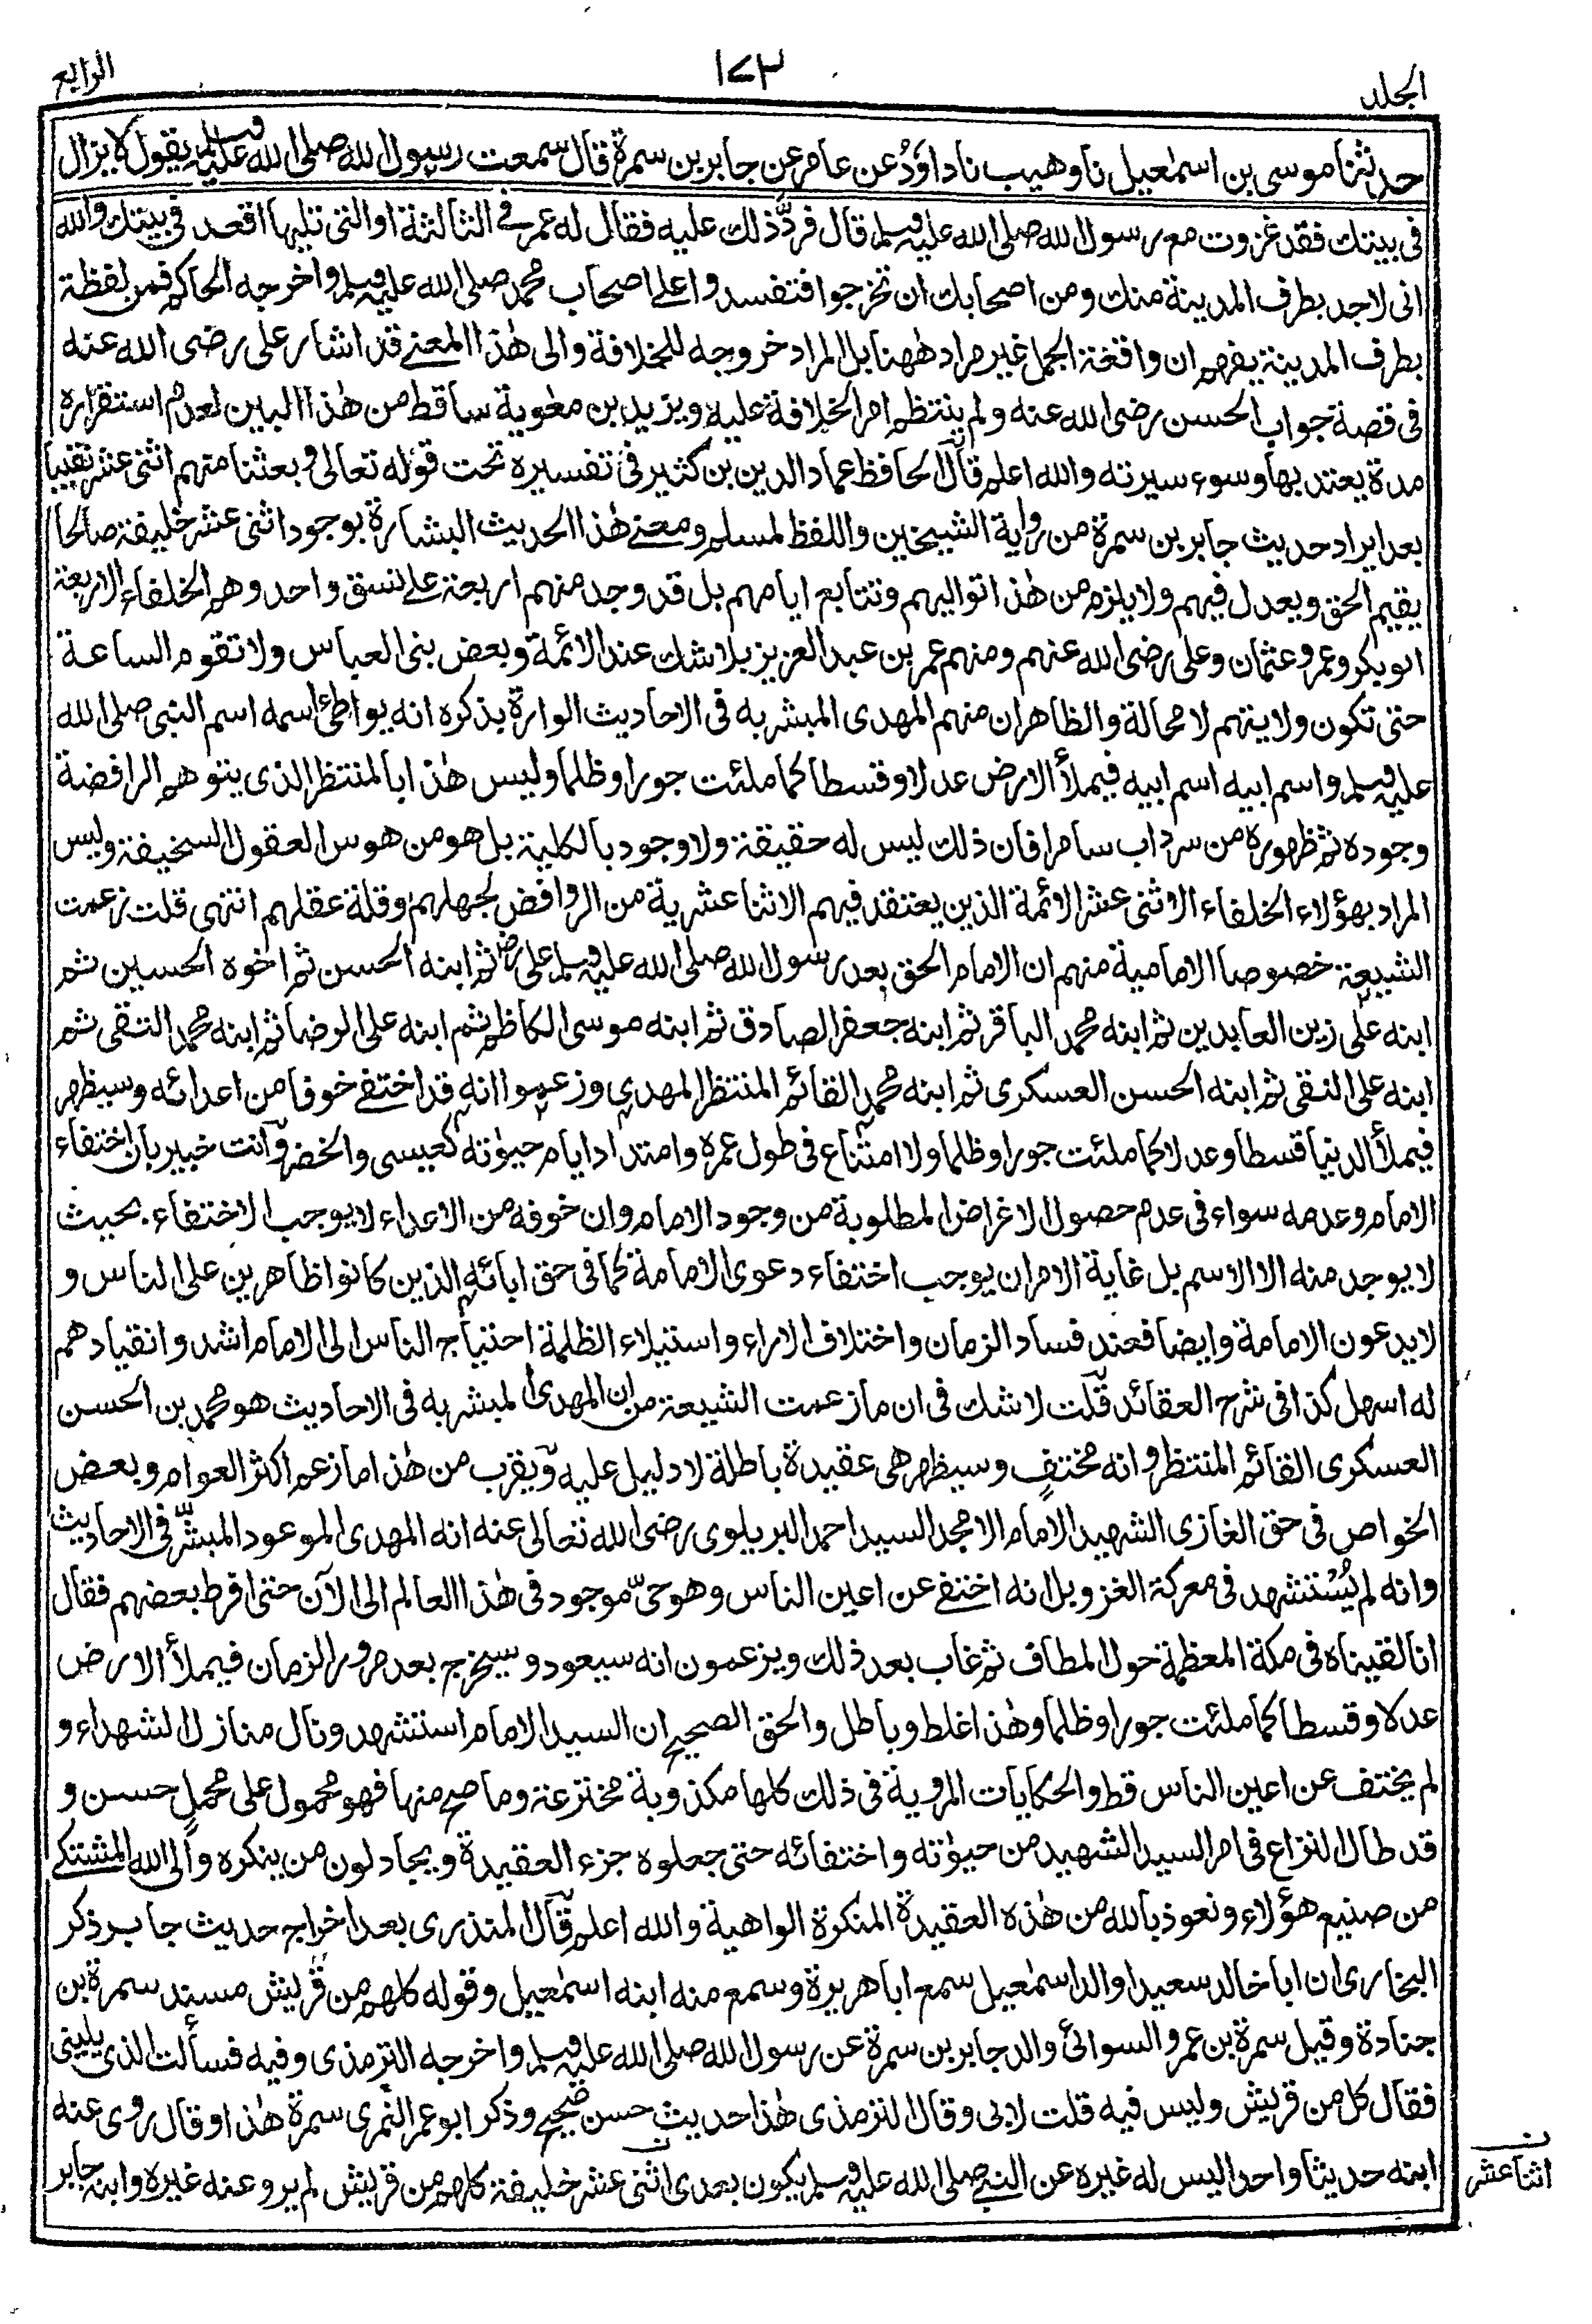 الجلد
١٧٣
الرابع
حدثنا موسى بن اسمٰعيل نا وهيب نا داوٗدُ عن عامر عن جابر بن سمرة قال سمعت رسول الله صلى الله عليه وسلم يقول لا يزال
فى بيتك فقد غزوت مع رسول الله صلى الله عليه وسلم قال فردّ ذلك عليه فقال له عمر فى الثالثة او التى تليها اقعد فى بيتك والله
انى لاجد بطرف المدينة منك ومن اصحابك ان تخرجوا فتفسدوا على اصحاب محمد صلى الله عليه وسلم واخرجه الحاكم فمن لفظة
بطرف المدينة يفهم ان واقعة الجمل غير مراد ههنا بل المراد خروجه للخلافة والى هٰذا المعنى قد اشار على رضى الله عنه
فى قصة جواب الحسن رضى الله عنه ولم ينتظم امر الخلافة عليه ويزيد بن معٰوية ساقط من هٰذا البين لعدم استقراره
مدة يعتد بها وسوء سيرته والله اعلم قال الحافظ عماد الدين بن كثير فى تفسيره تحت قوله تعالى وبعثنا منهم اثنى عشر نقيبا
بعد ايراد حديث جابر بن سمرة من رواية الشيخين واللفظ لمسلم ومعنى هٰذا الحديث البشارة بوجود اثنى عشر خليفة صالحا
يقيم الحق ويعدل فيهم ولا يلزم من هٰذا تواليهم وتتابع ايامهم بل قد وجد منهم اربعة على نسق واحد وهم الخلفاء الاربعة
ابو بكر وعمر وعثمان وعلى رضى الله عنهم ومنهم عمر بن عبد العزيز بلا شك عند الائمة وبعض بنى العباس ولا تقوم الساعة
حتى تكون ولايتهم لا محالة والظاهر ان منهم المهدى المبشر به فى الاحاديث الوارة بذكره انه يواطئ اسمه اسم النبى صلى الله
عليه وسلم واسم ابيه اسم ابيه فيملأ الارض عدلا وقسطا كما ملئت جورا وظلما وليس هٰذا بالمنتظر الذى يتوهم الرافضة
وجوده ثم ظهوره من سرداب سامرا فان ذلك ليس له حقيقة ولا وجود بالكلية بل هو من هوس العقول السخيفة وليس
المراد بهؤلاء الخلفاء الاثنى عشر الائمة الذين يعتقد فيهم الاثنا عشرية من الروافض لجهلهم وقلة عقلهم انتهى قلت زعمت
الشيعة خصوصا الامامية منهم ان الامام الحق بعد رسول الله صلى الله عليه وسلم على رض ثم ابنه الحسن ثم اخوه الحسين ثم
ابنه على زين العابدين ثم ابنه محمد الباقر ثم ابنه جعفر الصادق ثم ابنه موسى الكاظم ثم ابنه على الرضا ثم ابنه محمد التقى ثم
ابنه على النقى ثم ابنه الحسن العسكرى ثم ابنه محمد القائم المنتظر المهدى وزعموا انه قد اختفى خوفا من اعدائه وسيظهر
فيملأ الدنيا قسطا وعدلا كما ملئت جورا وظلما ولا امتناع فى طول عمره وامتداد ايام حيوٰته كعيسى والخضر وانت خبير بان اختفاء
الامام وعدمه سواء فى عدم حصول الاغراض المطلوبة من وجود الامام وان خوفه من الاعداء لا يوجب الاختفاء بحيث
لا يوجد منه الا الاسم بل غاية الامر ان يوجب اختفاء دعوى الامامة كما فى حق ابائه الذين كانوا ظاهرين على الناس و
لا يدعون الامامة وايضا فعند فساد الزمان واختلاف الاراء واستيلاء الظلمة احتياج الناس الى الامام اشد وانقيادهم
له اسهل كذا فى شرح العقائد قلت لا شك فى ان ما زعمت الشيعة من ان المهدى المبشر به فى الاحاديث هو محمد بن الحسن
العسكرى القائم المنتظر وانه مختفٍ وسيظهر هى عقيدة باطلة لا دليل عليه ويقرب من هٰذا ما زعم اكثر العوام وبعض
الخواص فى حق الغازى الشهيد الامام الامجد السيد احمد البريلوى رضى الله تعالى عنه انه المهدى الموعود المبشّر فى الاحاديث
وانه لم يُسْتشهد فى معركة الغزو بل انه اختفى عن اعين الناس وهو حىّ موجود فى هٰذا العالم الى الآن حتى افرط بعضهم فقال
انا لقيناه فى مكة المعظمة حول المطاف ثم غاب بعد ذلك ويزعمون انه سيعود وسيخرج بعد مرور الزمان فيملأ الارض
عدلا وقسطا كما ملئت جورا وظلما وهٰذا غلط وباطل والحق الصحيح ان السيد الامام استشهد ونال منازل الشهداء و
لم يختف عن اعين الناس قط والحكايات المروية فى ذلك كلها مكذوبة مخترعة وما صح منها فهو محمول على محملٍ حسن و
قد طال النزاع فى امر السيد الشهيد من حيوٰته واختفائه حتى جعلوه جزء العقيدة ويجادلون من ينكره والى الله المشتكى
من صنيع هؤلاء ونعوذ بالله من هٰذه العقيدة المنكرة الواهية والله اعلم قال المنذرى بعد اخراج حديث جابر ذكر
البخارى ان ابا خالد سعيدا والد اسمٰعيل سمع ابا هريرة وسمع منه ابنه اسمٰعيل وقوله كلهم من قريش مسند سمرة بن
جنادة وقيل سمرة بن عمرو السوائى والد جابر بن سمرة عن رسول الله صلى الله عليه وسلم واخرجه الترمذى وفيه فسألت الذى يلينى
فقال كل من قريش وليس فيه قلت لابى وقال الترمذى هٰذا حديث حسن صحيح وذكر ابو عمر النمرى سمرة هٰذا وقال روى عنه
ابنه حديثا واحدا ليس له غيره عن النبى صلى الله عليه وسلم يكون بعدى اثنى عشر خليفة كلهم من قريش لم يرو عنه غيره وابنه جابر
ن
اثنا عشر